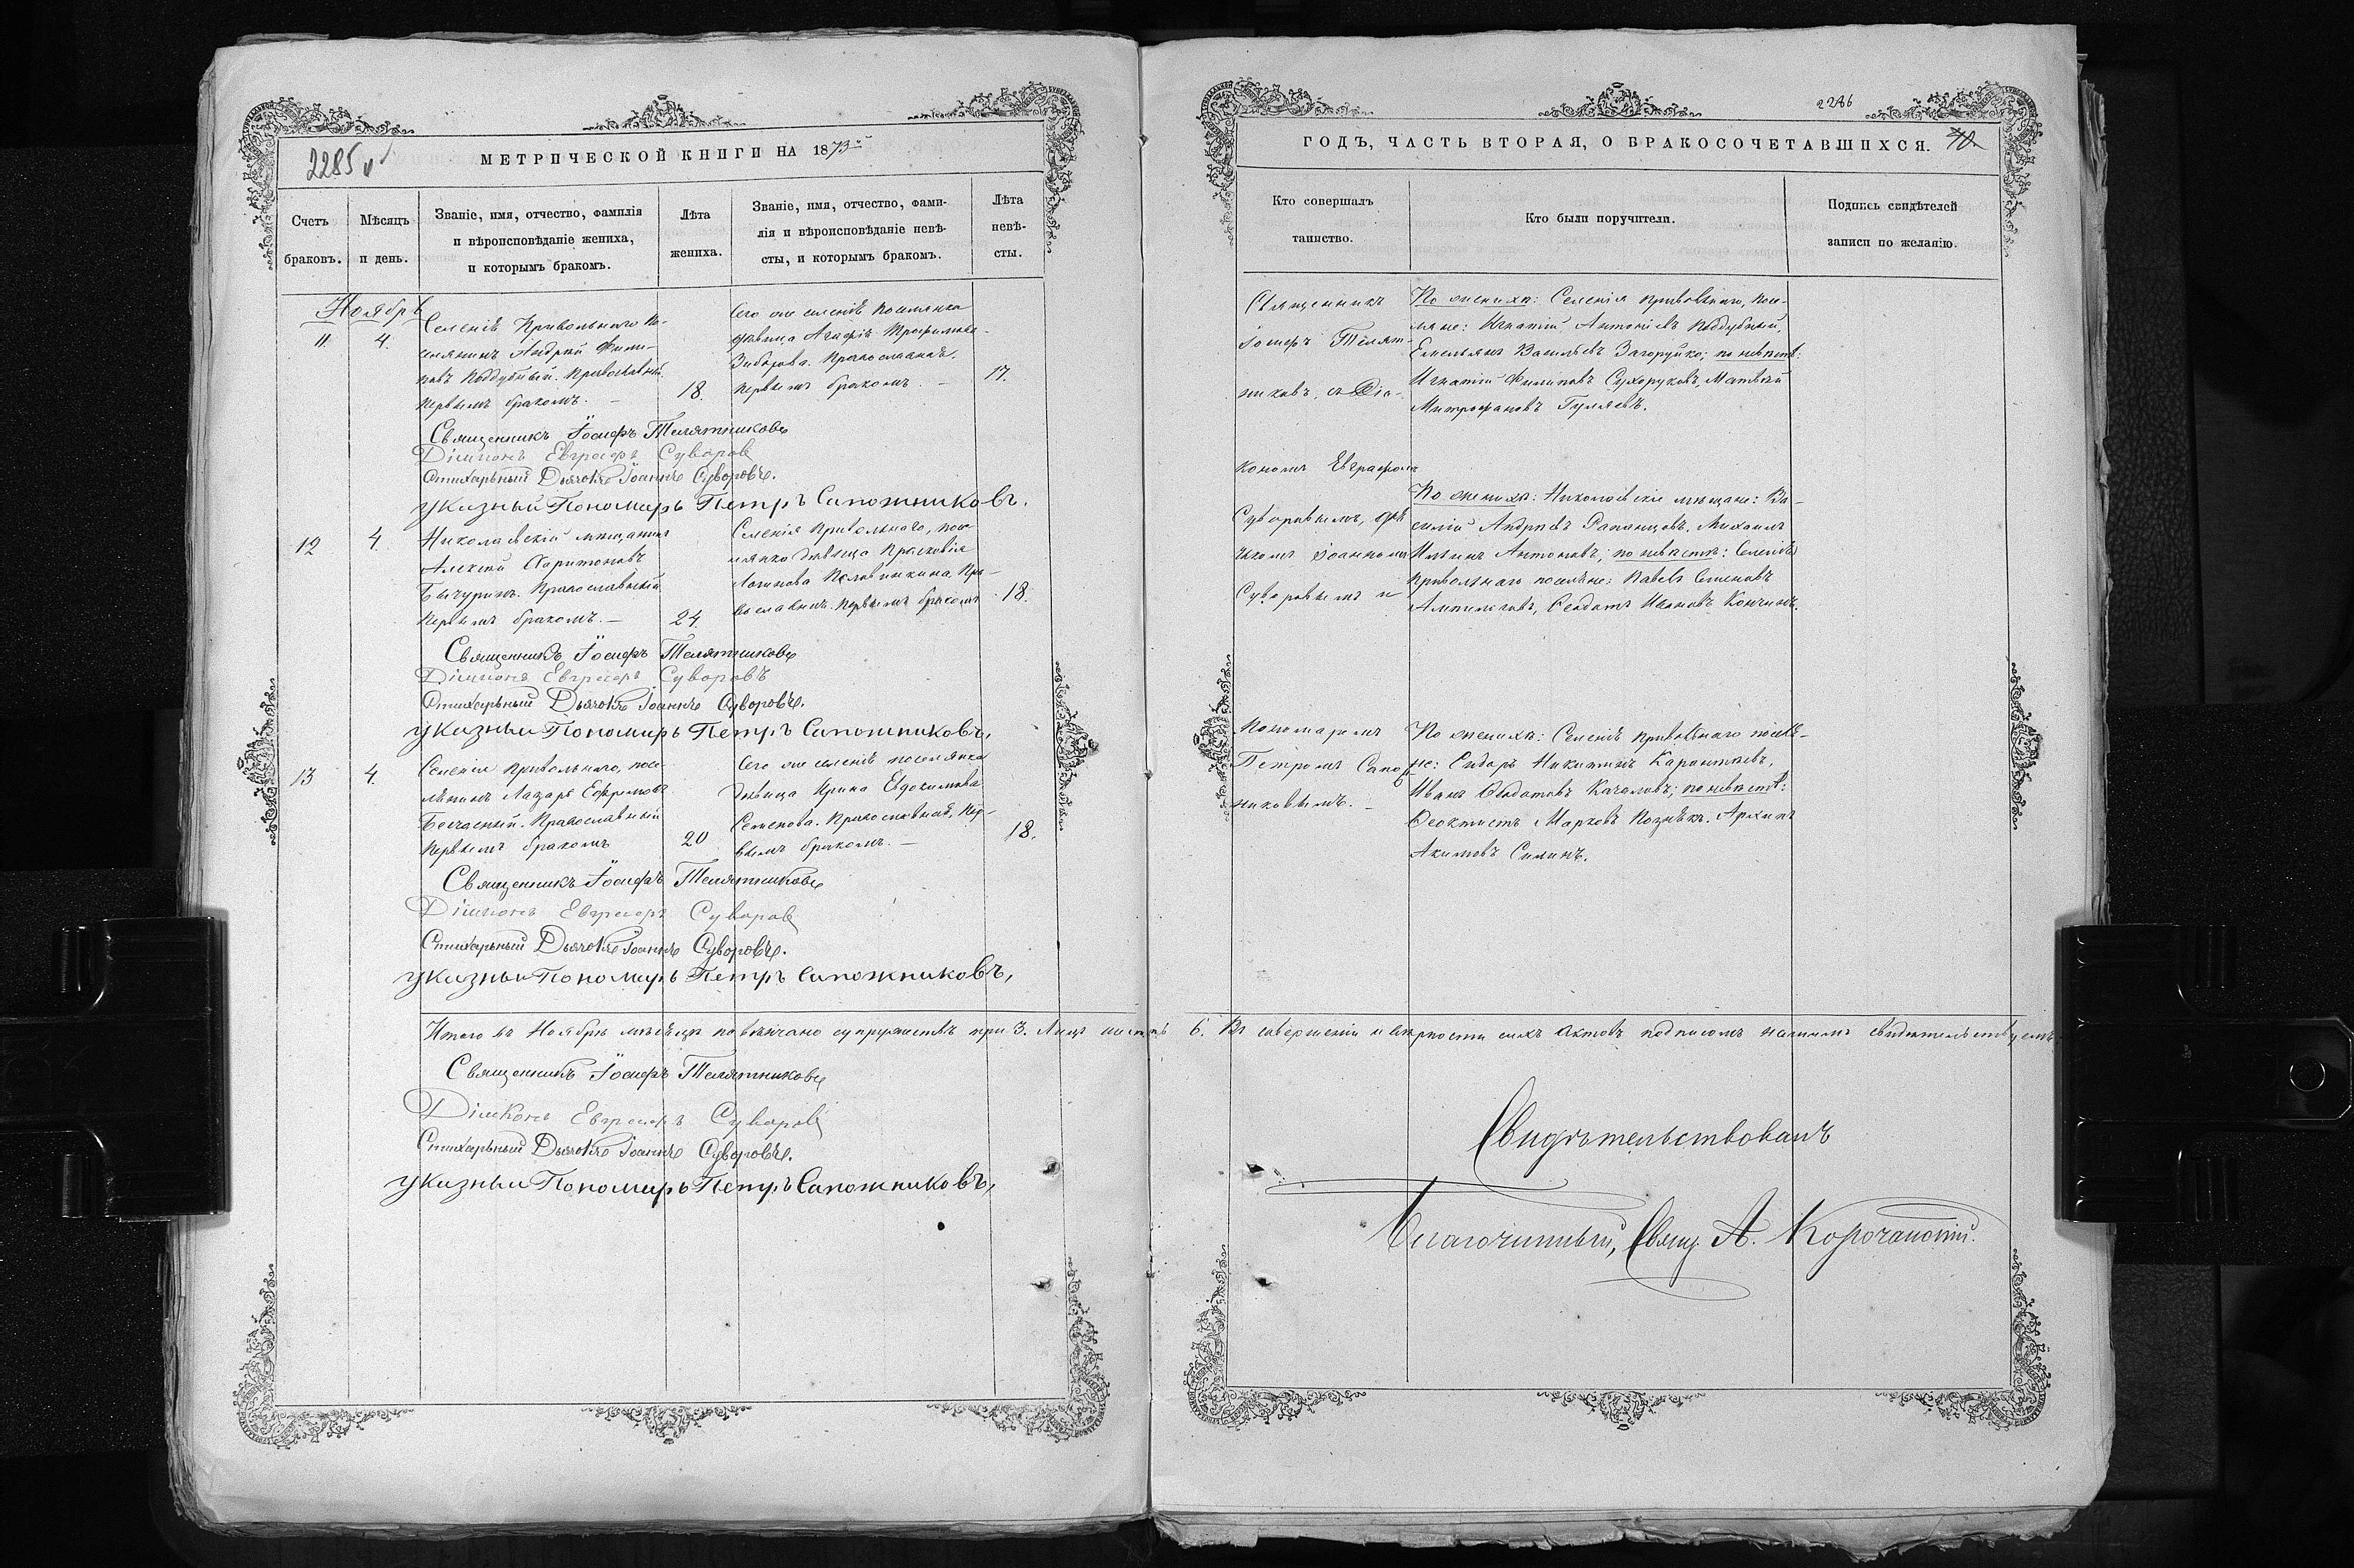 2285
МЕТРИЧЕСКОЙ КНИГИ НА 1873
Счетъ браковъ.
Мѣсяцъ и день.
Званіе, имя, отчество, фамилія и вѣроисповѣданіе жениха, и которымъ бракомъ.
Лѣта жениха.
Званіе, имя, отчество, фамилія и вѣроисповѣданіе невѣсты, и которымъ бракомъ.
Лѣта невѣсты.
Ноябрь
11. 4.
Селенія Привольнаго по-
селянинъ Андрей Фили-
повъ Поддубный. Православный
первымъ бракомъ. –
18.
Сего же селенія поселянка
дѣвица Агафія Трофимова
Православная.
первымъ бракомъ. –
17.
Священникъ Іосифъ Телятниковъ
Діаконъ Евграфъ Суворовъ
Стихарьный Дьячокъ Іоаннъ Суворовъ.
указный Пономарь Петръ Сапожниковъ.
12 4.
Николаевскій мѣщанинъ
Алексѣй Харитоновъ
Бичуринъ. Православный
первымъ бракомъ. –
24.
Селенія Привольнаго, посе-
лянка дѣвица Прасковія
Логинова Половинкина, Пра-
вославная. первымъ бракомъ
18.
Священникъ Іосифъ Телятниковъ
Діаконъ Евграфъ Суворовъ
Стихарьный Дьячокъ Іоаннъ Суворовъ.
указный Пономарь Петръ Сапожниковъ,
13 4.
Селенія Привольнаго, посе-
лянинъ Лазарь Ефремовъ
Безчасный. Православный
первымъ бракомъ
20
Сего же селенія поселянка
дѣвица Ирина Евдокимова
Семенова. Православная, пер-
вымъ бракомъ. –
18.
Священникъ Іосифъ Телятниковъ
Діаконъ Евграфъ Суворовъ
Стихарьный Дьячокъ Іоаннъ Суворовъ.
указный Пономарь Петръ Сапожниковъ,
Итого въ Ноябрѣ мѣсяцѣ повѣнчано супружествъ три 3. Лицъ шесть 6. Въ совершеніи и вѣрности сихъ актовъ подписомъ нашимъ свидѣтельствуемъ
Священникъ Іосифъ Телятниковъ
Діаконъ Евграфъ Суворовъ
Стихарьный Дьячокъ Іоаннъ Суворовъ.
указный Пономарь Петръ Сапожниковъ,
2286
ГОДЪ, ЧАСТЬ ВТОРАЯ, О БРАКОСОЧЕТАВШИХСЯ.
Кто совершалъ таинство.
Кто были поручители.
Подпись свидѣтелей записи по желанію.
Священникъ
Іосифъ Телят-
никовъ, съ Діа-
кономъ Евграфомъ
Суворовымъ, дья-
чкомъ Іоанномъ
Суворовымъ и
Пономаремъ
Петромъ Сапож-
никовымъ. –
По женихѣ: Селенія Привольнаго, посе-
ляне: Игнатій Антоніевъ Поддубный,
Емельянъ Васильевъ Загоруйко; по невѣстѣ:
Игнатій Филиповъ Сухоруковъ, Матвѣй
Митрофановъ Гуляевъ.
По женихѣ: Николаевскіе мѣщане: Ва-
силій Андреевъ Михаилъ
Ильинъ Антоновъ; по невѣстѣ: Селенія
Привольнаго поселяне: Павелъ Семеновъ
Ампилоговъ, Феодотъ Ивановъ
По женихѣ: Селенія Привольнаго поселя-
не: Сидоръ Никитинъ
Иванъ Федотовъ Качаловъ; по невѣстѣ:
Феоктистъ Марковъ Архипъ
Акимовъ Силинъ.
Свидѣтельствовалъ
Благочинный, Свящ. А. Корочанскій.